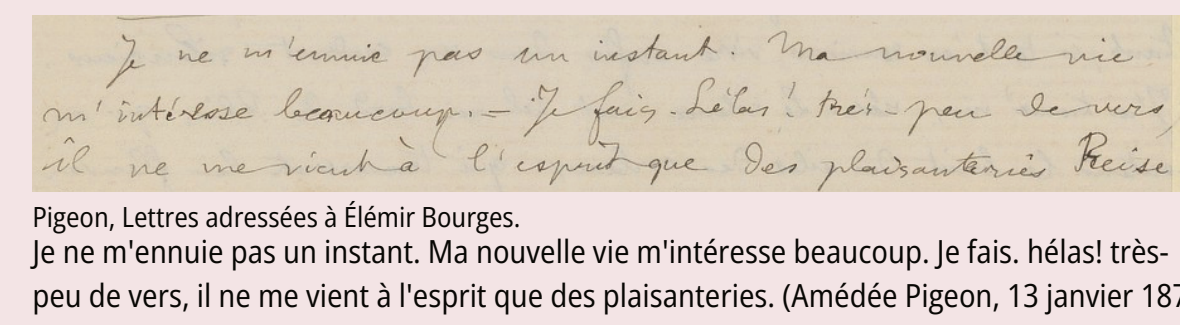 Je ne m'ennuie pas un instant. Ma nouvelle vie
m'intéresse beaucoup. – Je fais. hélas! très-peu de vers,
il ne me vient à l'esprit que des plaisanteries
Pigeon, Lettres adressées à Élémir Bourges.
Je ne m'ennuie pas un instant. Ma nouvelle vie m'intéresse beaucoup. Je fais. hélas! très-
peu de vers, il ne me vient à l'esprit que des plaisanteries. (Amédée Pigeon, 13 janvier 187